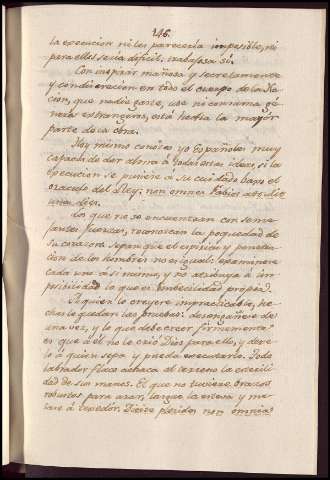 146.
la execucion ni les pareceria imposible, ni
para ellos seria dificil, trabajosa si.
Con inspirar mañosa y secretamente
y con discrecion en todo el cuerpo de la Na-
cion, que nadie gaste, use ni consuma gé-
neros estrangeros, está hecha la mayor
parte de la obra.
Hoy mismo conozco yo Españoles muy
capaces de dar alma á todas estas ideas, si la
execucion se pusiere á su cuidado baxo el
oraculo del Rey; non omnes Fabios abstulit
una dies.
Los que no se encuentran con seme-
jantes fuerzas, reconozcan la poquedad de
su corazon. Sepan que el espiritu y penetra-
cion de los hombres no es igual: examinese
cada uno á si mismo, y no atribuya á im-
posibilidad lo que es imbecilidad propia.
Si quien lo creyere impracticable, he-
chas le quedan las pruebas: desengañese de
una vez, y lo que debe creer firmemente
es que á el no le crió Dios para ello, y dexe-
lo á quien sepa y pueda executarlo. Todo
labrador flaco achaca al terreno la esterili-
dad de sus manos. El que no tuviere brazos
robustos para arar, largue la esteva y me-
tase á texedor. Dixe pleide, non omnia